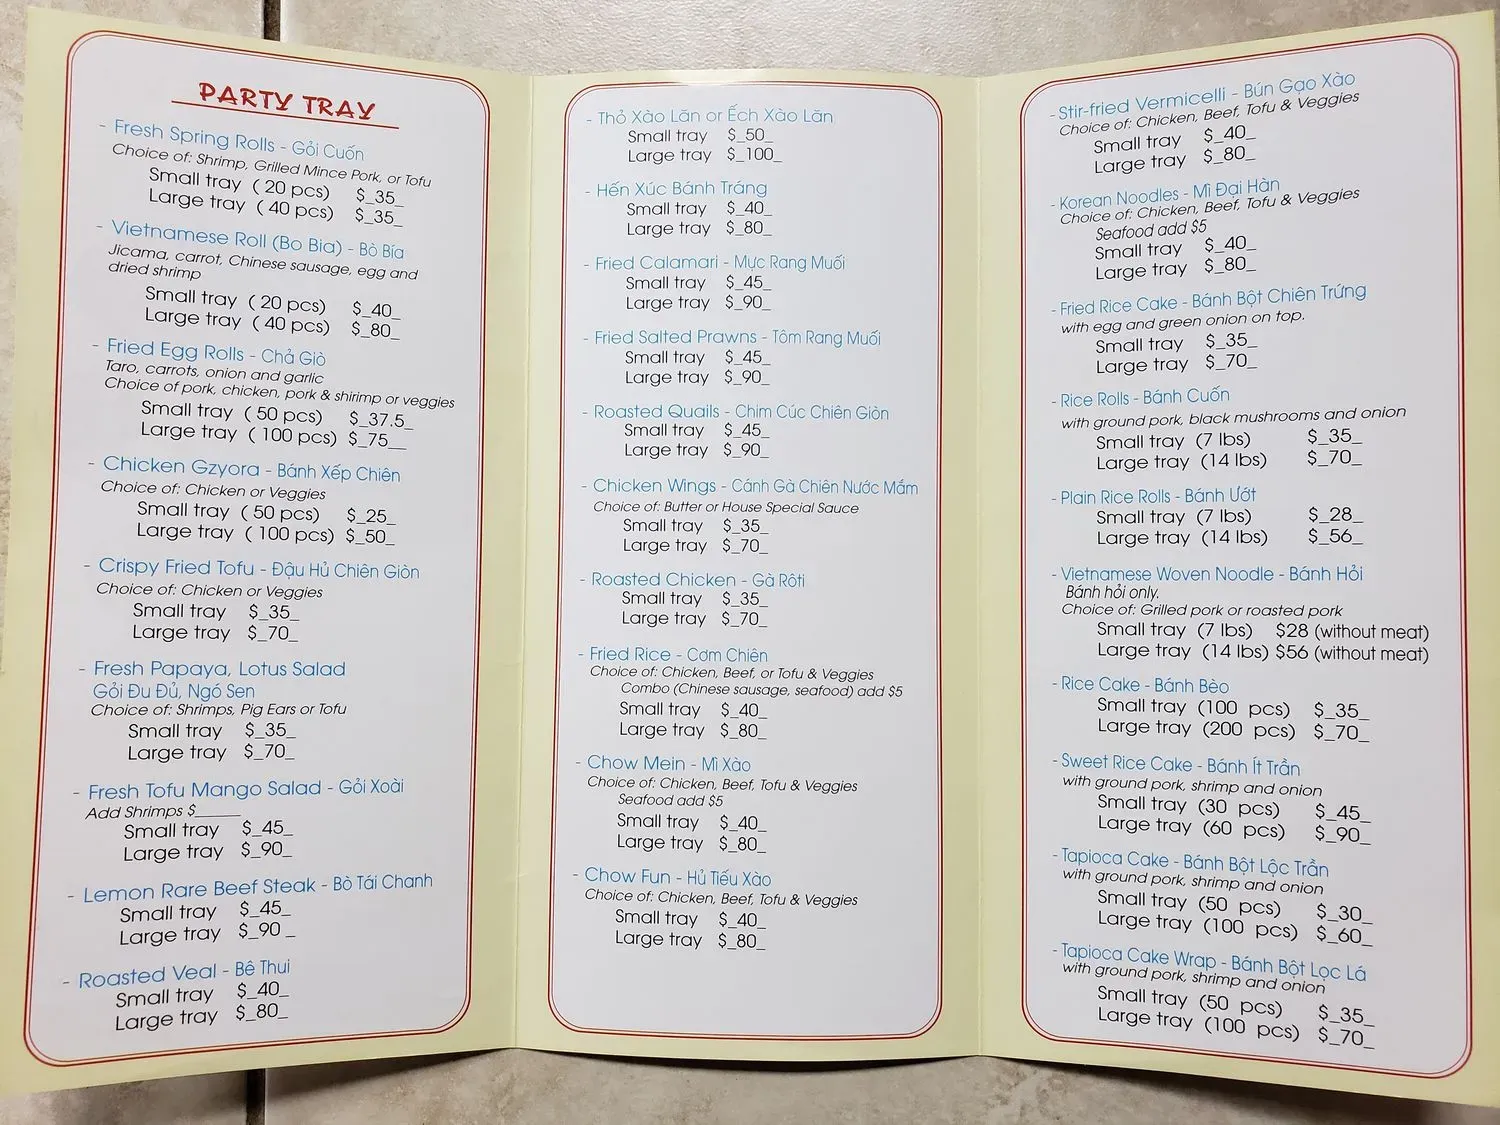 PARTY TRAY
- Fresh Spring Rolls - Gỏi Cuốn
Choice of: Shrimp, Grilled Mince Pork, or Tofu
Small tray ( 20 pcs) $_35_
Large tray ( 40 pcs) $_35_
- Vietnamese Roll (Bo Bia) - Bò Bía
Jicama, carrot, Chinese sausage, egg and
dried shrimp
Small tray ( 20 pcs) $_40_
Large tray ( 40 pcs) $_80_
- Fried Egg Rolls - Chả Giò
Taro, carrots, onion and garlic
Choice of pork, chicken, pork & shirimp or veggies
Small tray ( 50 pcs) $_37.5_
Large tray ( 100 pcs) $_75__
- Chicken Gzyora - Bánh Xếp Chiên
Choice of: Chicken or Veggies
Small tray ( 50 pcs) $_25_
Large tray ( 100 pcs) $_50_
- Crispy Fried Tofu - Đậu Hủ Chiên Giòn
Choice of: Chicken or Veggies
Small tray $_35_
Large tray $_70_
- Fresh Papaya, Lotus Salad
Gỏi Đu Đủ, Ngó Sen
Choice of: Shrimps, Pig Ears or Tofu
Small tray $_35_
Large tray $_70_
- Fresh Tofu Mango Salad - Gỏi Xoài
Add Shrimps $______
Small tray $_45_
Large tray $_90_
- Lemon Rare Beef Steak - Bò Tái Chanh
Small tray $_45_
Large tray $_90 _
- Roasted Veal - Bê Thui
Small tray $_40_
Large tray $_80_
- Thỏ Xào Lăn or Ếch Xào Lăn
Small tray $_50_
Large tray $_100_
- Hến Xúc Bánh Tráng
Small tray $_40_
Large tray $_80_
- Fried Calamari - Mực Rang Muối
Small tray $_45_
Large tray $_90_
- Fried Salted Prawns - Tôm Rang Muối
Small tray $_45_
Large tray $_90_
- Roasted Quails - Chim Cúc Chiên Giòn
Small tray $_45_
Large tray $_90_
- Chicken Wings - Cánh Gà Chiên Nước Mắm
Choice of: Butter or House Special Sauce
Small tray $_35_
Large tray $_70_
- Roasted Chicken - Gà Rôti
Small tray $_35_
Large tray $_70_
- Fried Rice - Cơm Chiên
Choice of: Chicken, Beef, or Tofu & Veggies
Combo (Chinese sausage, seafood) add $5
Small tray $_40_
Large tray $_80_
- Chow Mein - Mì Xào
Choice of: Chicken, Beef, Tofu & Veggies
Seafood add $5
Small tray $_40_
Large tray $_80_
- Chow Fun - Hủ Tiếu Xào
Choice of: Chicken, Beef, Tofu & Veggies
Small tray $_40_
Large tray $_80_
- Stir-fried Vermicelli - Bún Gạo Xào
Choice of: Chicken, Beef, Tofu & Veggies
Small tray $_40_
Large tray $_80_
- Korean Noodles - Mì Đại Hàn
Choice of: Chicken, Beef, Tofu & Veggies
Seafood add $5
Small tray $_40_
Large tray $_80_
- Fried Rice Cake - Bánh Bột Chiên Trứng
with egg and green onion on top.
Small tray $_35_
Large tray $_70_
- Rice Rolls - Bánh Cuốn
with ground pork, black mushrooms and onion
Small tray (7 lbs) $_35_
Large tray (14 lbs) $_70_
- Plain Rice Rolls - Bánh Ướt
Small tray (7 lbs) $_28_
Large tray (14 lbs) $_56_
- Vietnamese Woven Noodle - Bánh Hỏi
Bánh hỏi only.
Choice of: Grilled pork or roasted pork
Small tray (7 lbs) $28 (without meat)
Large tray (14 lbs) $56 (without meat)
- Rice Cake - Bánh Bèo
Small tray (100 pcs) $_35_
Large tray (200 pcs) $_70_
- Sweet Rice Cake - Bánh Ít Trần
with ground pork, shrimp and onion
Small tray (30 pcs) $_45_
Large tray (60 pcs) $_90_
- Tapioca Cake - Bánh Bột Lộc Trần
with ground pork, shrimp and onion
Small tray (50 pcs) $_30_
Large tray (100 pcs) $_60_
- Tapioca Cake Wrap - Bánh Bột Lọc Lá
with ground pork, shrimp and onion
Small tray (50 pcs) $_35_
Large tray (100 pcs) $_70_